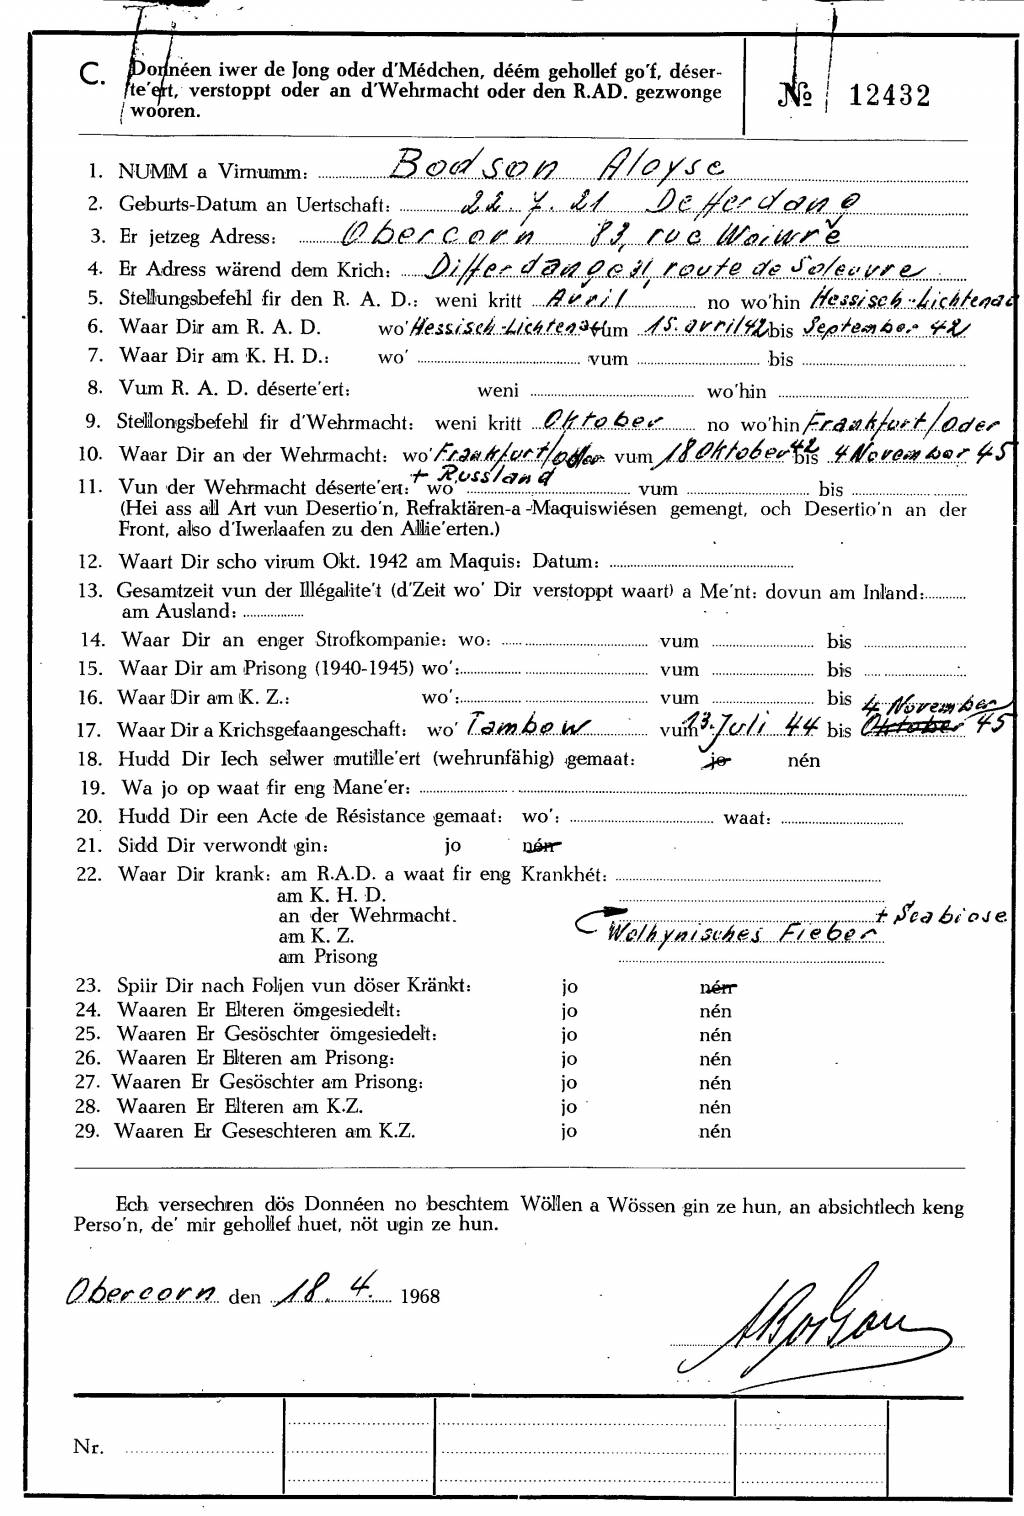 C. Donnéen iwer de Jong oder d'Médchen, déém gehollef go'f, déser-
te'ert, verstoppt oder an d'Wehrmacht oder den R.AD. gezwonge
wooren.
№ 12432
1. NUMM a Virnumm: Bodson Aloyse
2. Geburts-Datum an Uertschaft: 22.7.21 Differdange
3. Er jetzeg Adress: Obercorn 83, rue Woiwre
4. Er Adress wärend dem Krich: Differdange 31, route de Soleuvre
5. Stellungsbefehl fir den R. A. D.: weni kritt Avril no wo'hin Hessisch-Lichtenau
6. Waar Dir am R. A. D. wo' Hessisch-Lichtenau vum 15. avril 42 bis September 42
7. Waar Dir am K. H. D.: wo' vum bis
8. Vum R. A. D. déserte'ert: weni wo'hin
9. Stellongsbefehl fir d'Wehrmacht: weni kritt Oktober no wo'hin Frankfurt/Oder
10. Waar Dir an der Wehrmacht: wo' Frankfurt/Oder vum 18 Oktober 42 bis 4 November 45
+ Russland
11. Vun der Wehrmacht déserte'ert: wo vum bis
(Hei ass all Art vun Desertio'n, Refraktären-a-Maquiswiésen gemengt, och Desertio'n an der
Front, also d'Iwerlaafen zu den Allie'erten.)
12. Waart Dir scho virum Okt. 1942 am Maquis: Datum:
13. Gesamtzeit vun der Illégalite't (d'Zeit wo' Dir verstoppt waart) a Me'nt: dovun am Inland:
am Ausland:
14. Waar Dir an enger Strofkompanie: wo: vum bis
15. Waar Dir am Prisong (1940-1945) wo': vum bis
16. Waar Dir am K. Z.: wo': vum bis
4 November
17. Waar Dir a Krichsgefaangeschaft: wo' Tambow vum 13. Juli 44 bis Oktober 45
18. Hudd Dir Iech selwer mutille'ert (wehrunfähig) gemaat: jo nén
19. Wa jo op waat fir eng Mane'er:
20. Hudd Dir een Acte de Résistance gemaat: wo': waat:
21. Sidd Dir verwondt gin: jo nén
22. Waar Dir krank: am R.A.D. a waat fir eng Krankhét:
am K. H. D.
an der Wehrmacht. + Scabiose
am K. Z. Wolhynisches Fieber
am Prisong
23. Spiir Dir nach Foljen vun döser Kränkt: jo nén
24. Waaren Er Elteren ömgesiedelt: jo nén
25. Waaren Er Gesöschter ömgesiedelt: jo nén
26. Waaren Er Elteren am Prisong: jo nén
27. Waaren Er Gesöschter am Prisong: jo nén
28. Waaren Er Elteren am K.Z. jo nén
29. Waaren Er Geseschteren am K.Z. jo nén
Ech versechren dös Donnéen no beschtem Wöllen a Wössen gin ze hun, an absichtlech keng
Perso'n, de' mir gehollef huet, nöt ugin ze hun.
Obercorn den 18. 4. 1968
ABodson
Nr.